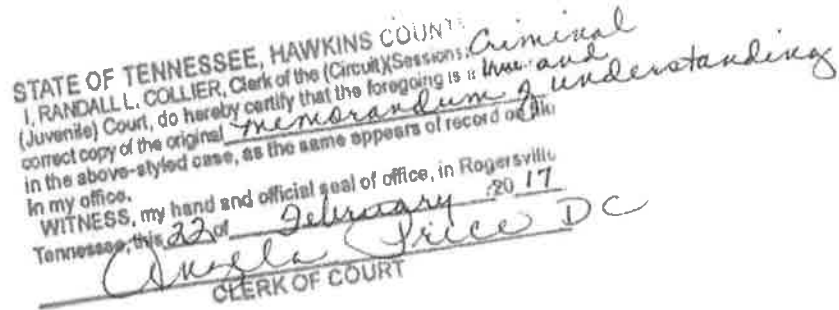 STATE OF TENNESSEE, HAWKINS COUNTY
I, RANDALL L. COLLIER, Clerk of the (Circuit)(Sessions) Criminal
(Juvenile) Court, do hereby certify that the foregoing is a true and
correct copy of the original memorandum of understanding
in the above-styled case, as the same appears of record or file
in my office.
WITNESS, my hand and official seal of office, in Rogersville
Tennessee, this 22 of February 20 17
Angela Price DC
CLERK OF COURT